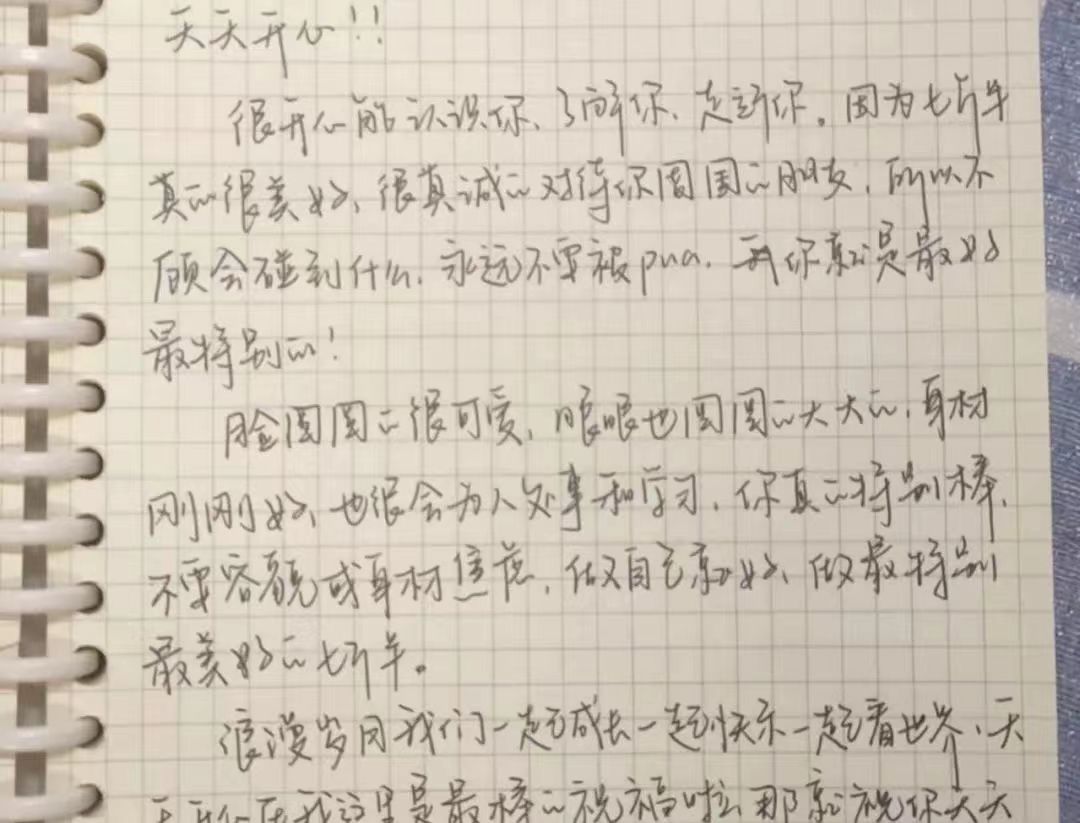 天天开心!!
很开心能认识你、了解你、走近你。因为七斤半
真的很美好、很真诚的对待你周围的朋友,所以不
顾会碰到什么,永远不要被pua,我你就是最好
最特别的!
脸圆圆的很可爱,眼眼也圆圆的大大的,身材
刚刚好、也很会为人处事和学习,你真的特别棒,
不要容颜或身材焦虑,做自己就好、做最特别
最美好的七斤半。
浪漫岁月我们一起成长一起快乐一起看世界、天
天开心在我这里是最棒的祝福啦那就祝你天天